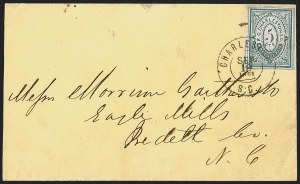 CHARLESTON
SEP
S.C.
5
Messrs Morrison Gaither & Co
Eagle Mills
Iredell Co.
N. C